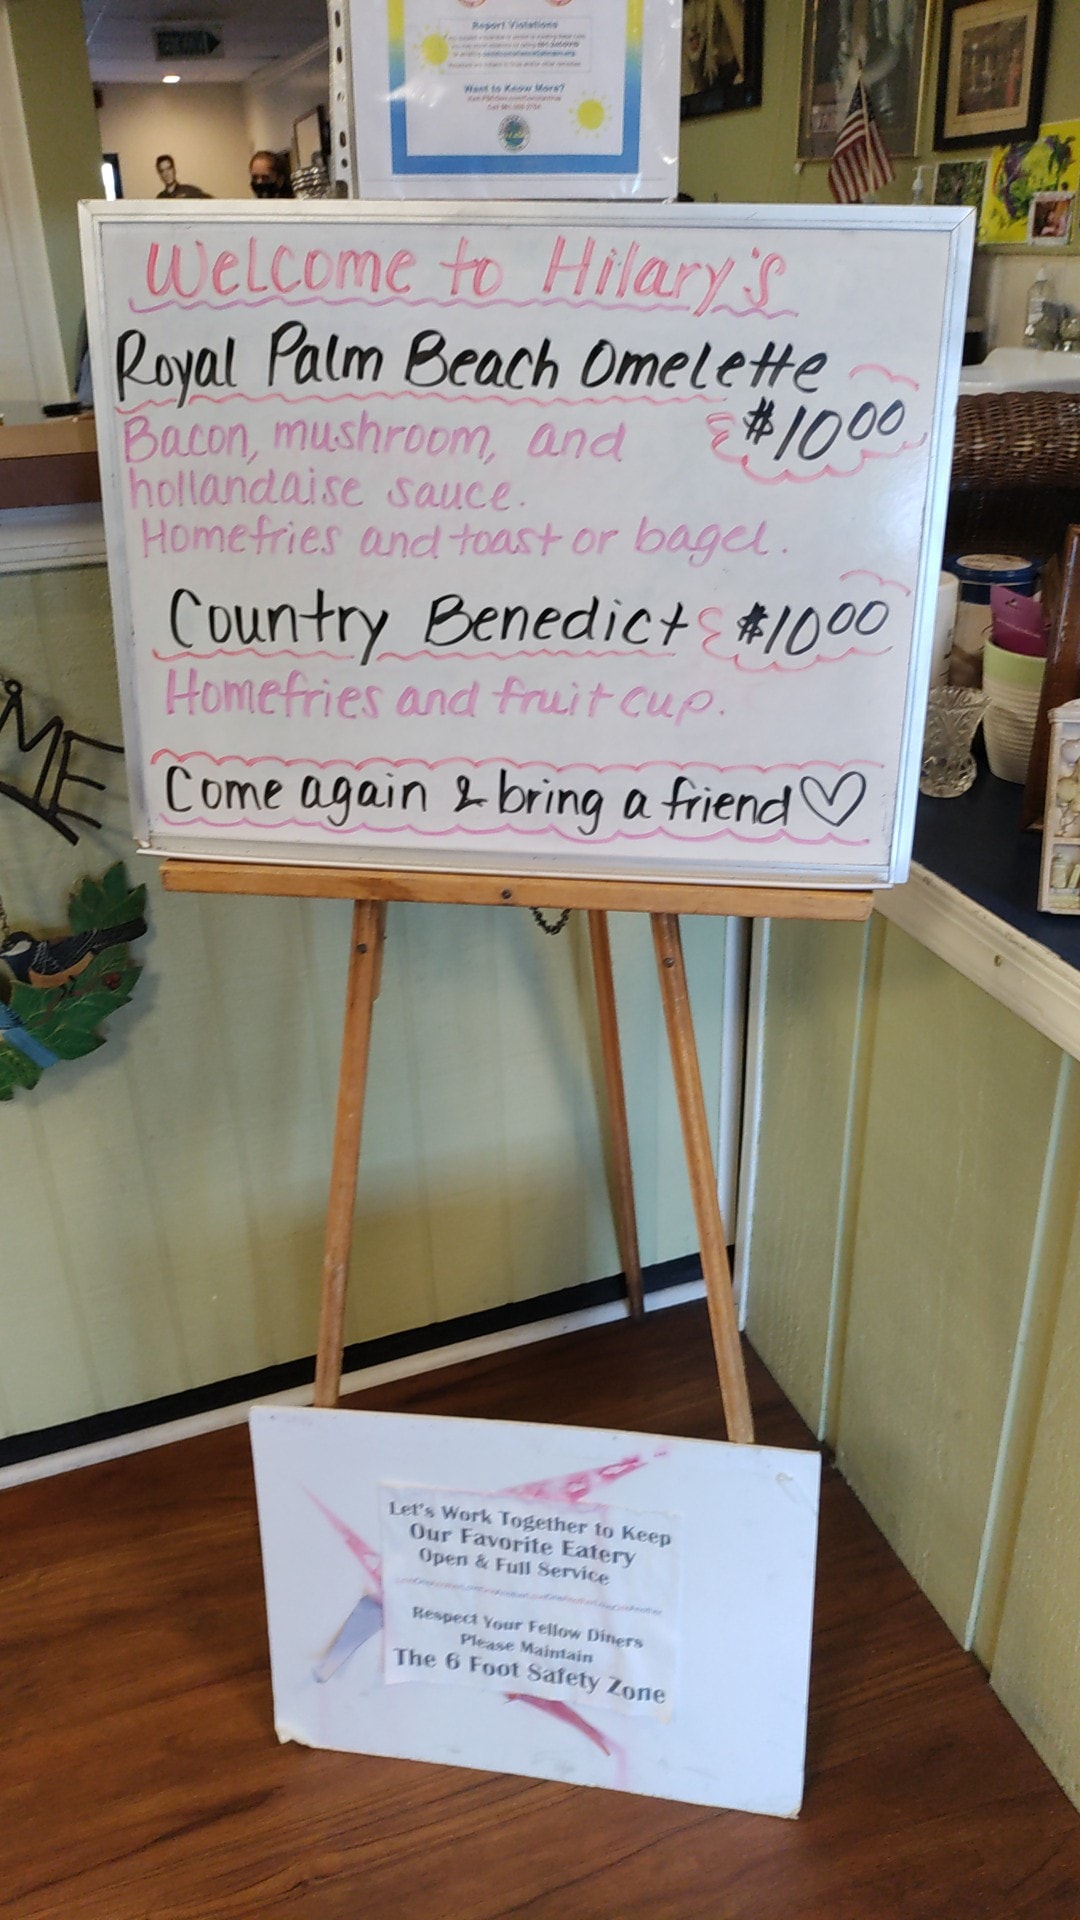 Report Violations
Want to Know More?
Welcome to Hilary's
Royal Palm Beach Omelette
$10.00
Bacon, mushroom, and
hollandaise sauce.
Homefries and toast or bagel.
Country Benedict $10.00
Homefries and fruit cup.
Come again & bring a friend
ME
Let's Work Together to Keep
Our Favorite Eatery
Open & Full Service
Respect Your Fellow Diners
Please Maintain
The 6 Foot Safety Zone